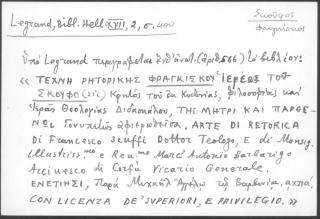 Legrand, Bibl. Hell. XVII, 2, σ. 400
Σκοῦφος
Φραγκίσκος
Ὑπὸ Legrand περιγράφεται ὑπ' ἀριθ. (566) τὸ βιβλίον:
« ΤΕΧΝΗ ΡΗΤΟΡΙΚΗΣ ΦΡΑΓΚΙΣΚΟΥ Ἱερέως τοῦ
ΣΚΟΥΦΟ (sic) Κρητὸς τοῦ ἐκ Κυδωνίας, φιλοσοφίας καὶ
Ἱερᾶς Θεολογίας Διδασκάλου, ΤΗ ΜΗΤΡΙ ΚΑΙ ΠΑΡΘΕ-
ΝΩ ἀφιερωθεῖσα. ARTE DI RETORICA
di Francesco Scuffi Dottor Teologo, E di Monsig.
Illustriss.mo e Reu.mo Marc' Antonio Barbarigo
Arcivesco di Corfù Vicario Generale.
ΕΝΕΤΙΗΣΙ, Παρὰ Μιχαὴλ Ἀγγέλῳ τῷ Βαρβωνίῳ, αχπα.
CON LICENZA DE' SUPERIORI, E PRIVILEGIO. »